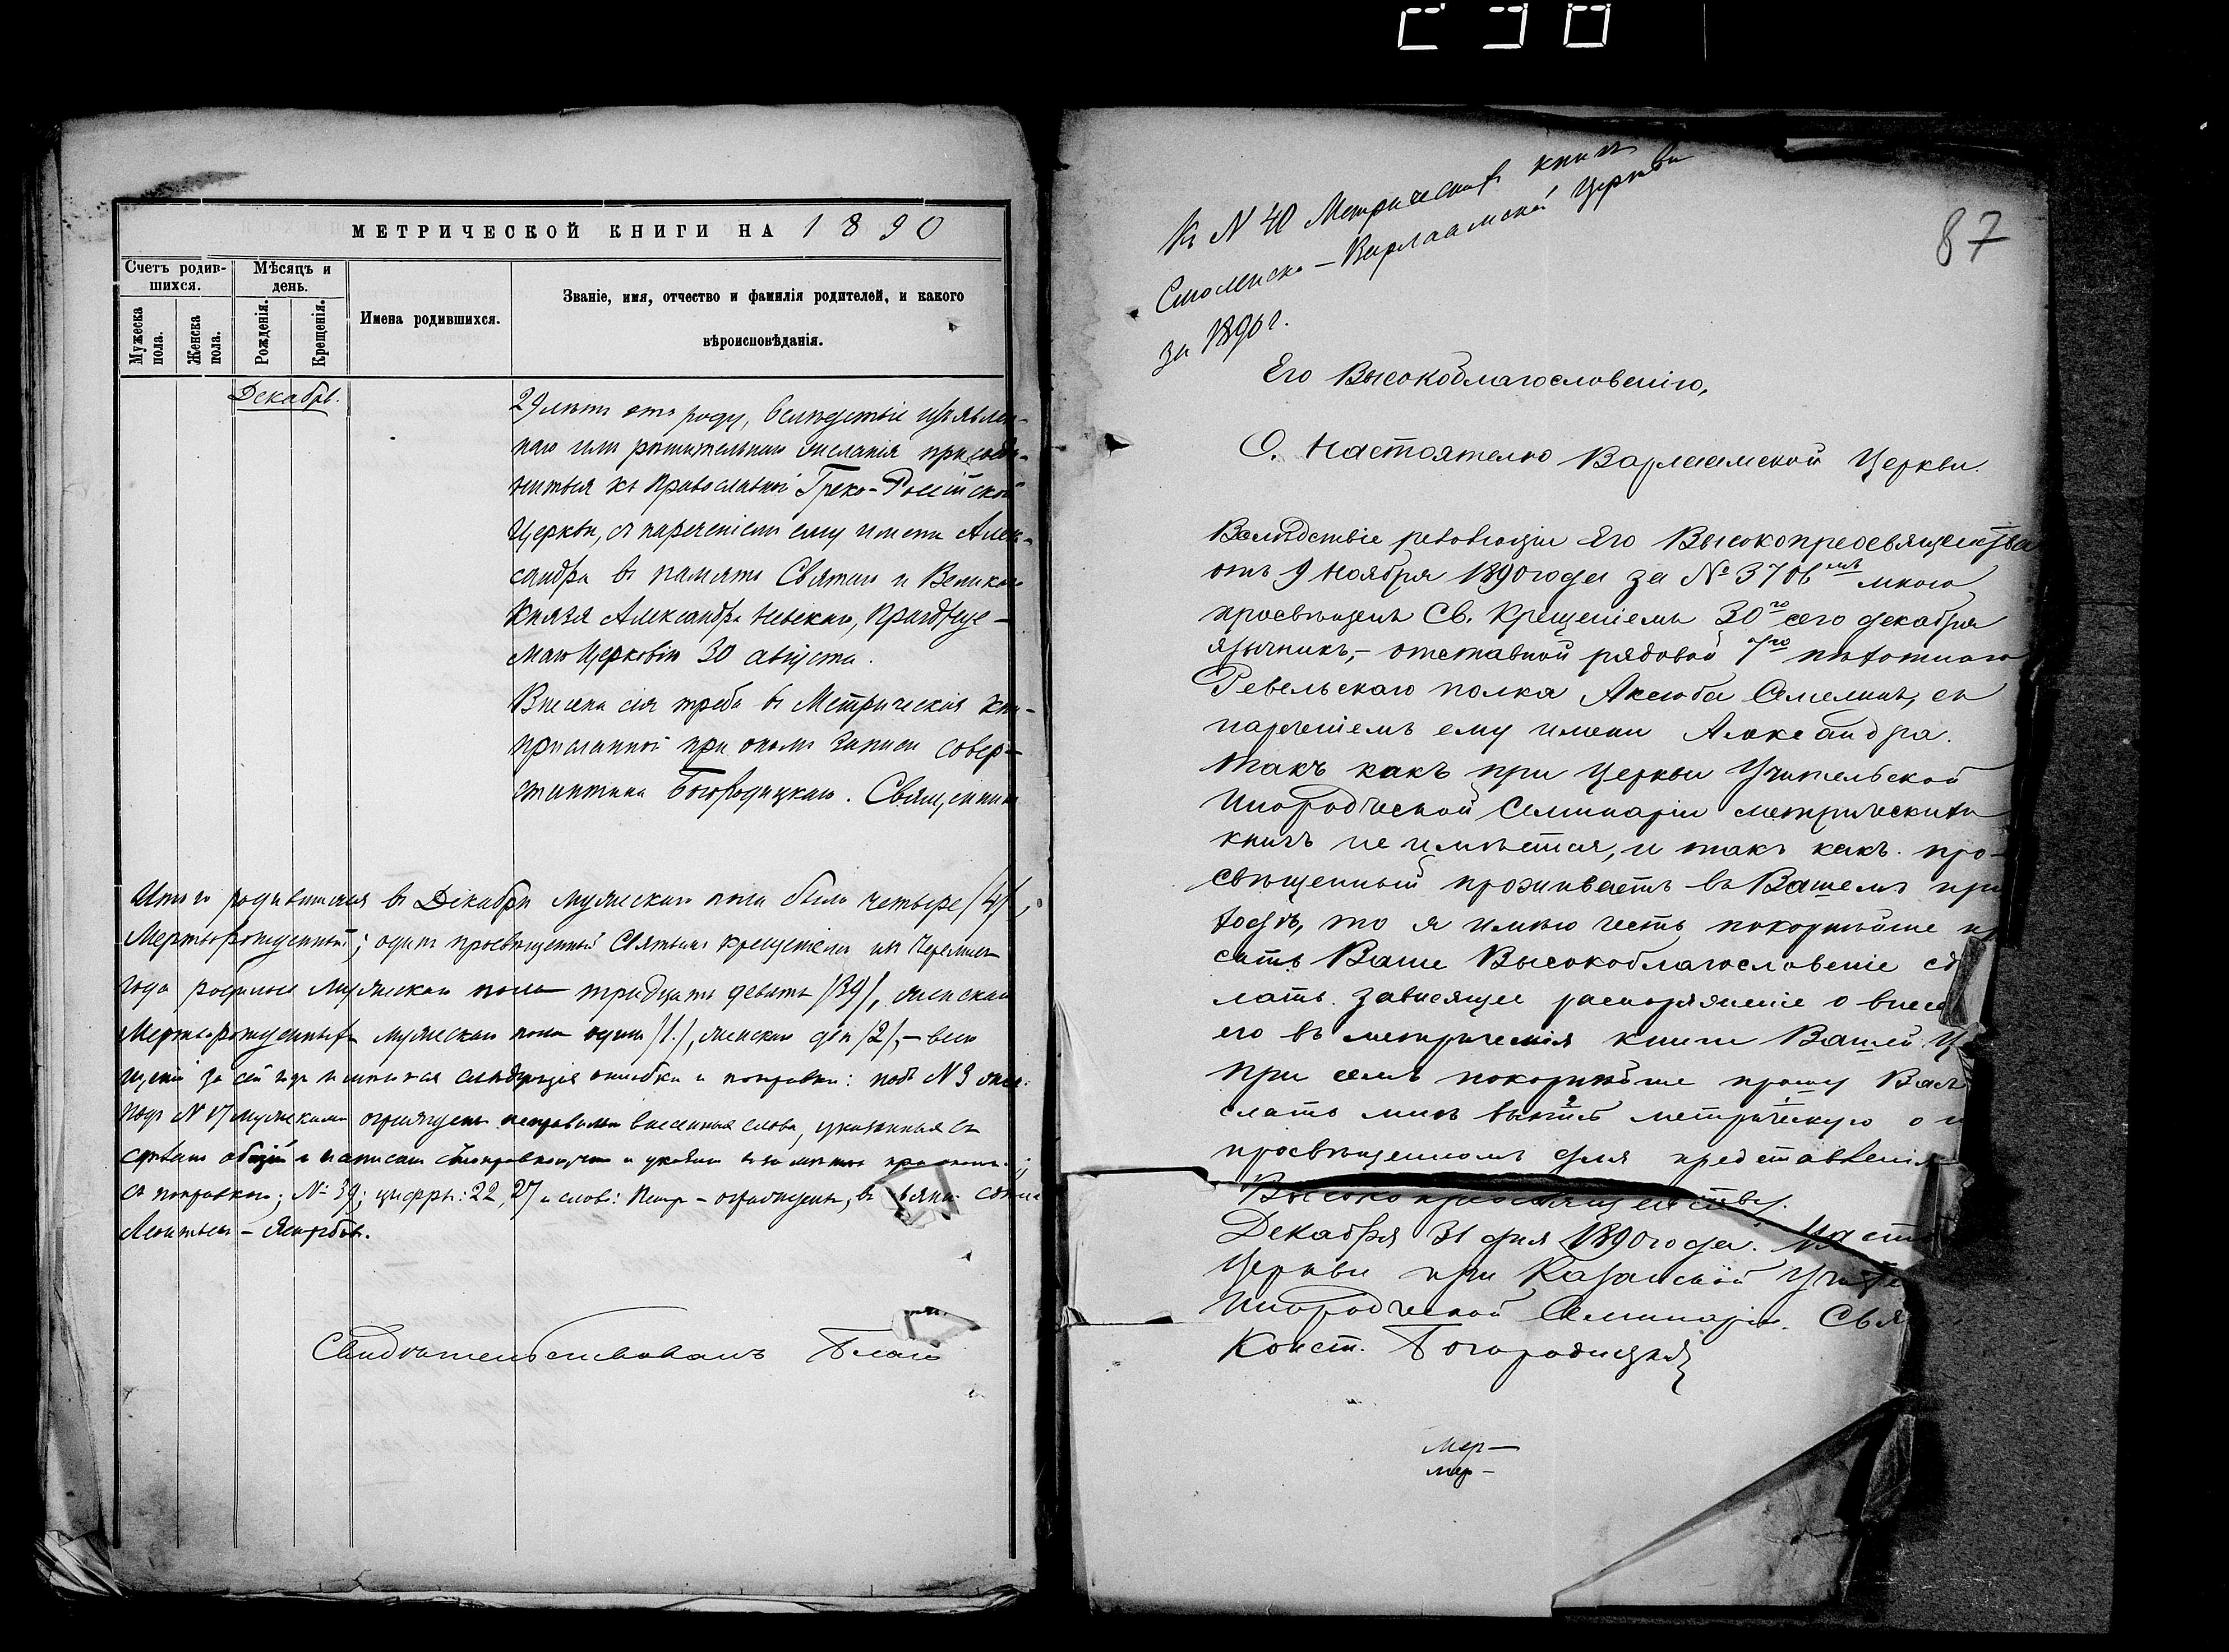 МЕТРИЧЕСКОЙ КНИГИ НА 1890
Счетъ родив-
шихся.
Мужеска пола.
Женска пола.
Мѣсяцъ и день.
Рожденія.
Крещенія.
Имена родившихся.
Званіе, имя, отчество и фамилія родителей, и какого
вѣроисповѣданія.
Декабрь.
29 лѣтъ отъ роду, вслѣдствіе изъявлен-
наго имъ рѣшительнаго желанія присоеди-
ниться къ Православной Греко-Россійской
Церкви, съ нареченіемъ ему имени Алек-
сандра въ память Святаго и Великаго
Князя Александра Невскаго, празднуе-
маго Церковію 30 августа.
Внесена сія треба въ Метрическія кни-
присланной при ономъ записи совер-
стантина Богородицкаго. Священник
Итого родившихся въ Декабрѣ мужескаго пола было четыре /4/,
Мертворожденный; одинъ просвѣщенный Святымъ крещеніемъ изъ Черемисъ
года родилось мужескаго пола тридцать девять /39/, женскаго
Мертворожденныхъ мужескаго пола одинъ /1/, женскаго два /2/, — всего
щеніи за сей годъ имѣются слѣдующія ошибки и поправки: подъ N 3 женс.
подъ N 17 мужескимъ неправильно внесенныя слова, указанныя въ
съ поправкою; № 39; цифры: 22, 27 и слов: Петр —
Свидѣтельствовалъ Благо
87
Къ N 40 Метрическихъ книгъ
Смоленско-Варлаамской Церкви
за 1890 г.
Его Высокоблагословенію,
О. Настоятелю Варлаамской Церкви.
Вслѣдствіе резолюціи Его Высокопреосвященства
отъ 9 Ноября 1890 года за № 3706мъ мною
просвѣщенъ Св. Крещеніемъ 30го сего декабря
язычникъ, - отставной рядовой 7го пѣхотнаго
Ревельскаго полка Аксюба Семелинъ, съ
нареченіемъ ему имени Александра.
Такъ какъ при Церкви Учительской
Инородческой Семинаріи метрическихъ
книгъ не имѣется, и такъ какъ про-
свѣщенный проживаетъ въ Вашемъ при
ходѣ, то я имѣю честь покорнѣйше пр
сить Ваше Высокоблагословеніе сдѣ
лать зависящее распоряженіе о внесе
его въ метрическія книги Вашей Ц
При семъ покорнѣйше прошу Вас
слать мнѣ выпись метрическую о н
просвѣщенномъ для представленія
Высокопреосвященству.
Декабря 31 дня 1890 года. Насто
Церкви при Казанской Учите
Инородческой Семинаріи. Свя
Конст. Богородицкій
Мер—
мер—